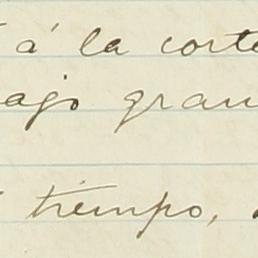 á la corte
ago gran
tiempo,